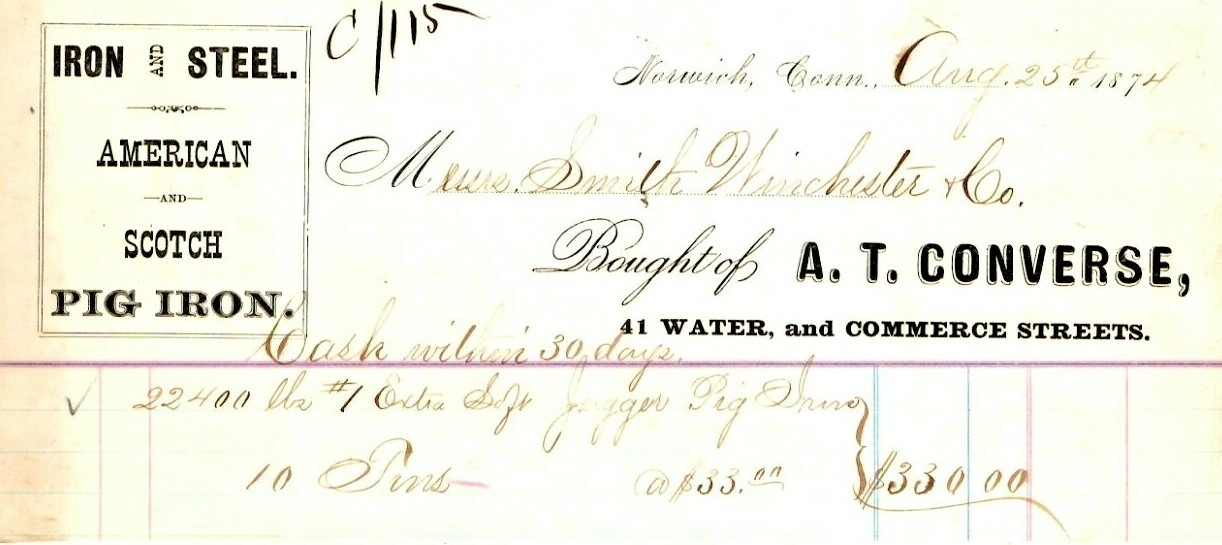 IRON AND STEEL.
AMERICAN
—AND—
SCOTCH
PIG IRON.
C/115
Norwich, Conn., Aug. 25th 1874
Messrs. Smith Winchester & Co.
Bought of A. T. CONVERSE,
41 WATER, and COMMERCE STREETS.
Cash within 30 days.
✓ 22400 lbs #1 Extra Soft Jagger Pig Iron
10 Tons @ $33.00 $330 00